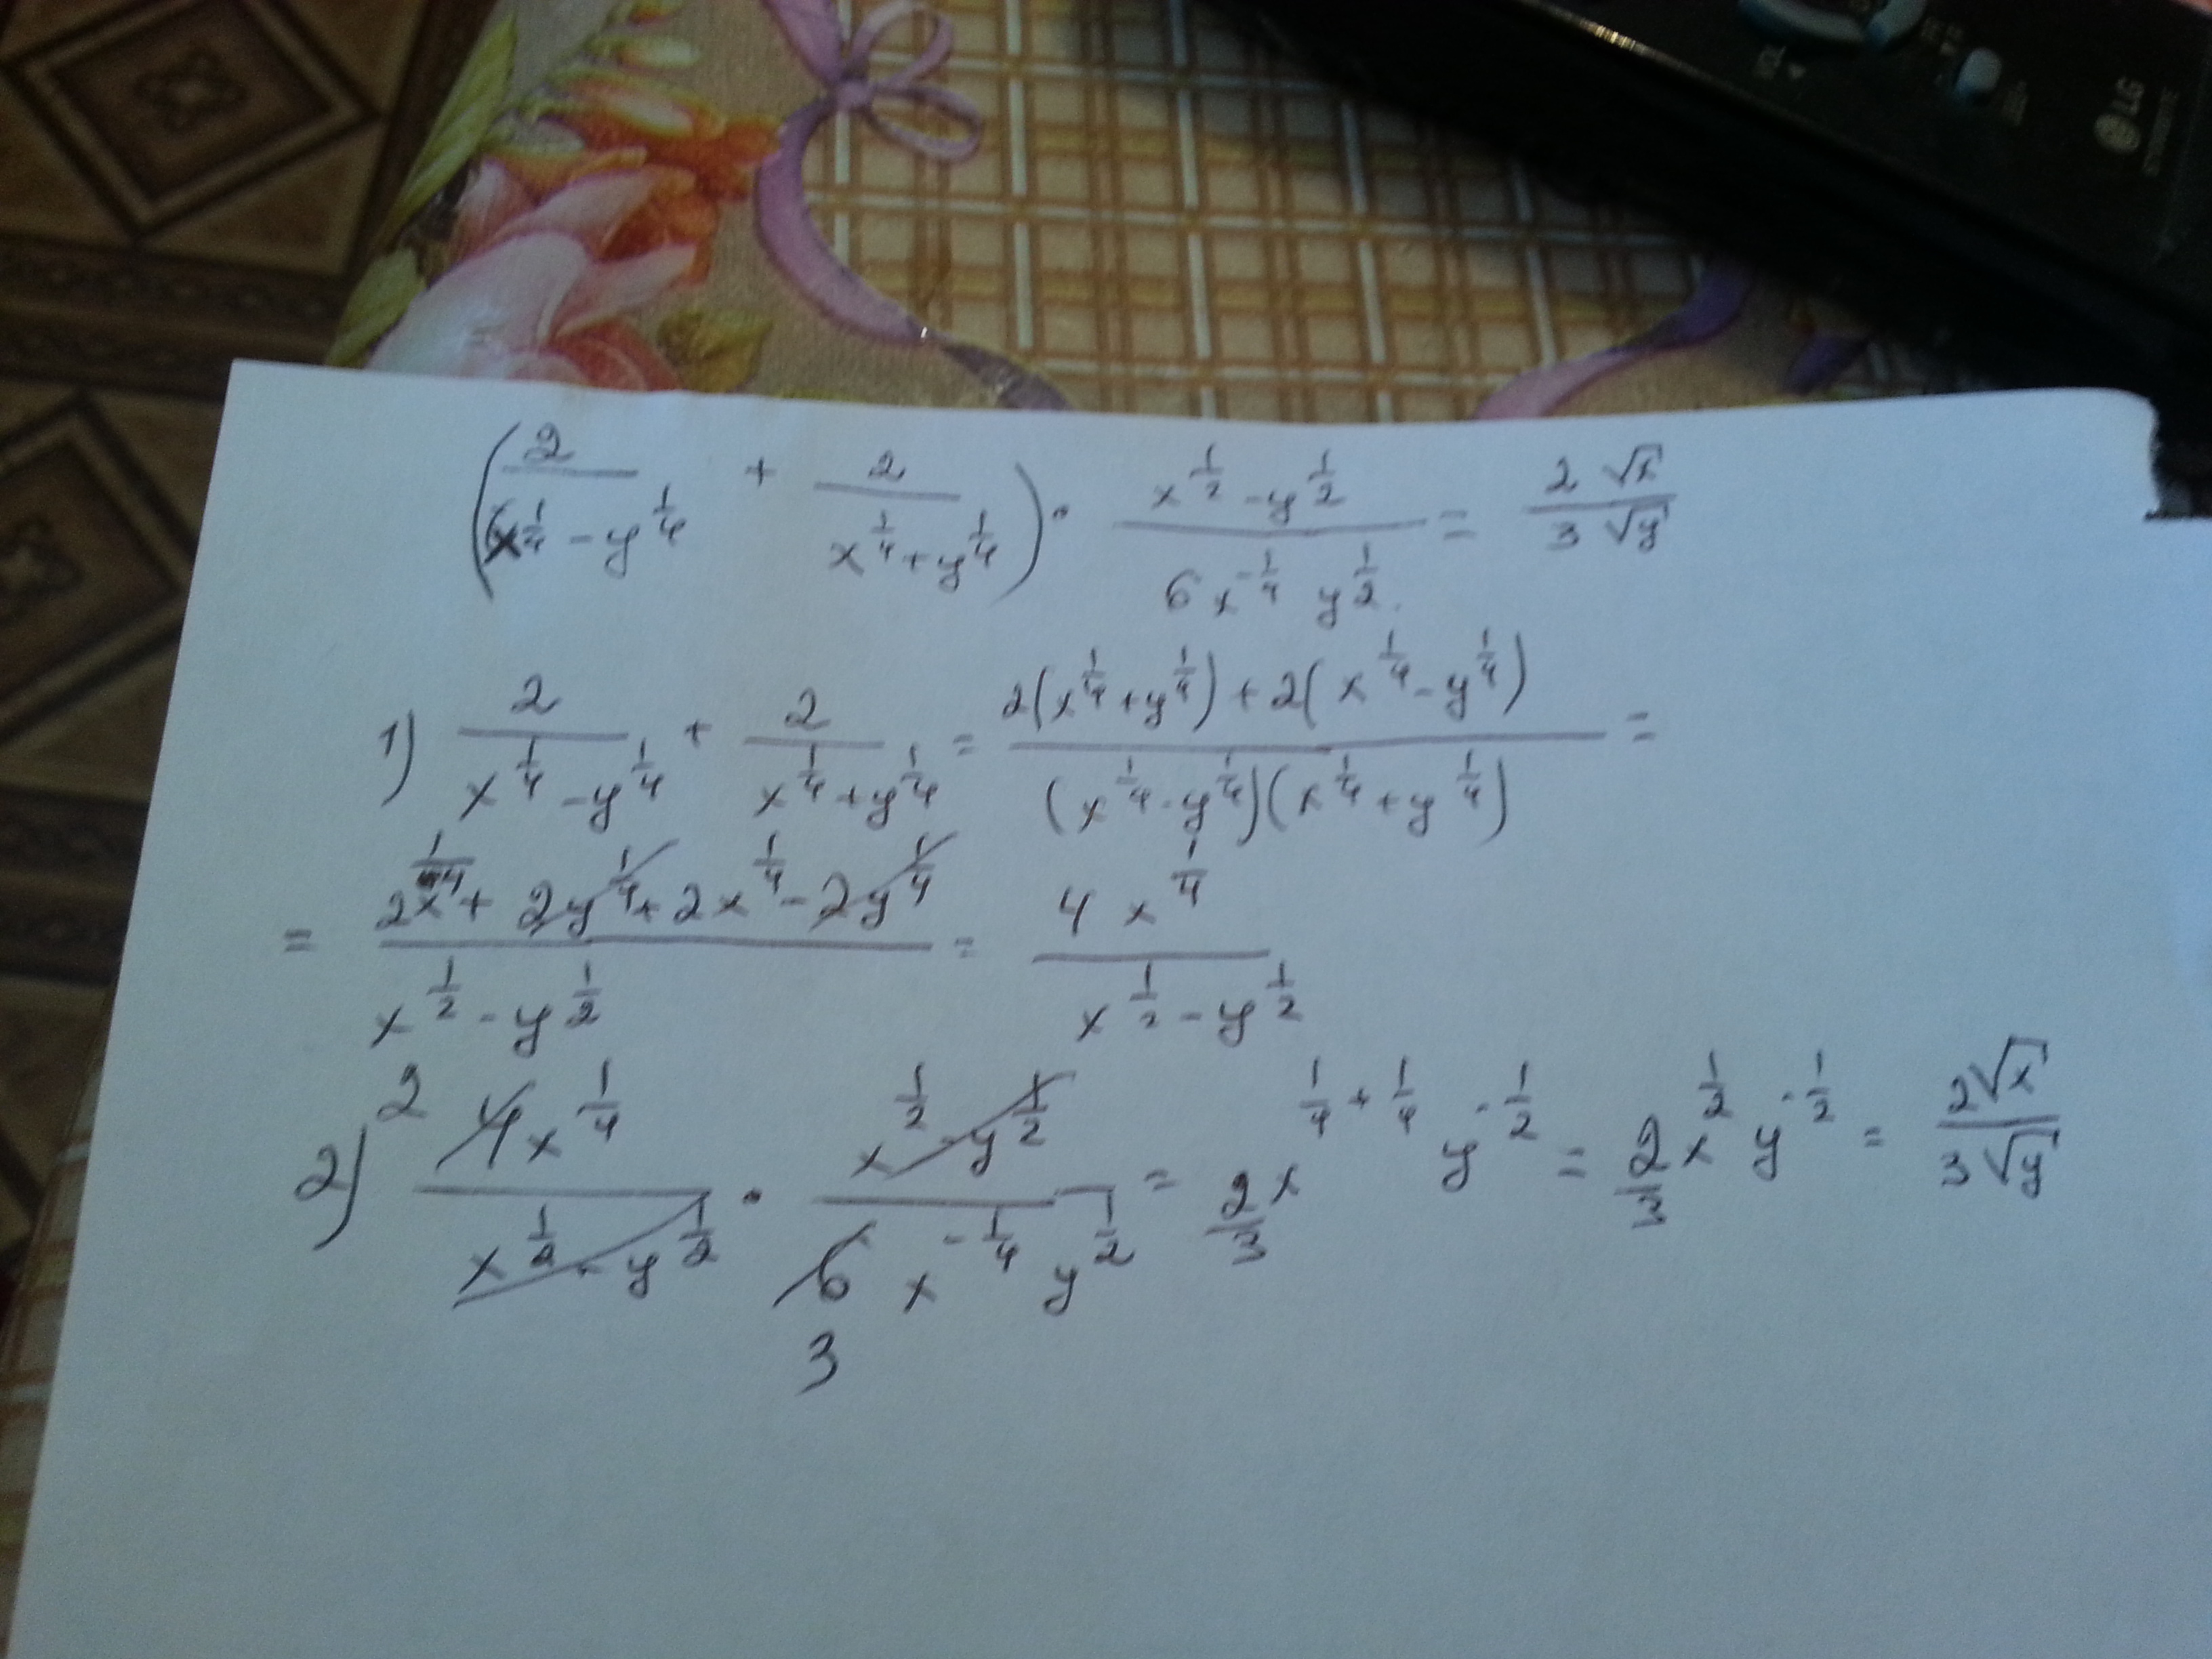 LG
(2/(x^(1/4) - y^(1/4)) + 2/(x^(1/4) + y^(1/4))) · (x^(1/2) - y^(1/2))/(6x^(-1/4) y^(1/2)) = 2√x/(3√y)
1) 2/(x^(1/4) - y^(1/4)) + 2/(x^(1/4) + y^(1/4)) = (2(x^(1/4) + y^(1/4)) + 2(x^(1/4) - y^(1/4)))/((x^(1/4) - y^(1/4))(x^(1/4) + y^(1/4))) =
= (2x^(1/4) + 2y^(1/4) + 2x^(1/4) - 2y^(1/4))/(x^(1/2) - y^(1/2)) = 4x^(1/4)/(x^(1/2) - y^(1/2))
2) 2 4x^(1/4)/(x^(1/2) - y^(1/2)) · (x^(1/2) - y^(1/2))/(6 3 x^(-1/4) y^(1/2)) = 2/3 x^(1/4 + 1/4) y^(-1/2) = 2/3 x^(1/2) y^(-1/2) = 2√x/(3√y)